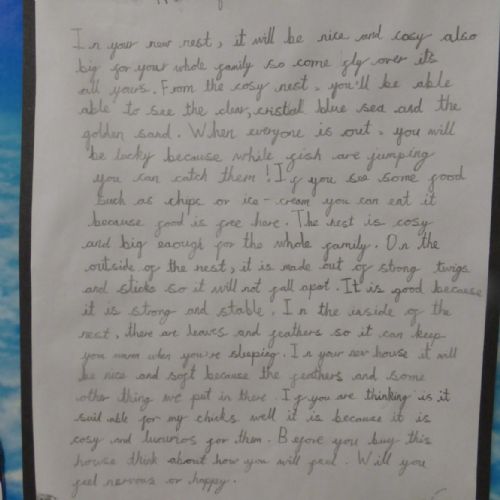 In your new nest, it will be nice and cosy also
big for your whole family so come fly over it's
all yours. From the cosy nest, you'll be able
able to see the clear, cristial blue sea and the
golden sand. When everyone is out, you will
be lucky because while fish are jumping
you can catch them! If you see some food
such as chips or ice-cream you can eat it
because food is free here. The nest is cosy
and big enough for the whole family. On the
outside of the nest, it is made out of strong twigs
and sticks so it will not fall apart. It is good because
it is strong and stable. In the inside of the
nest, there are leaves and feathers so it can keep
you warm when you're sleeping. In your new house it will
be nice and soft because the feathers and some
other thing we put in there. If you are thinking is it
suit able for my chicks well it is because it is
cosy and luxurios for them. Before you buy this
house think about how you will feel. Will you
feel nervous or happy.